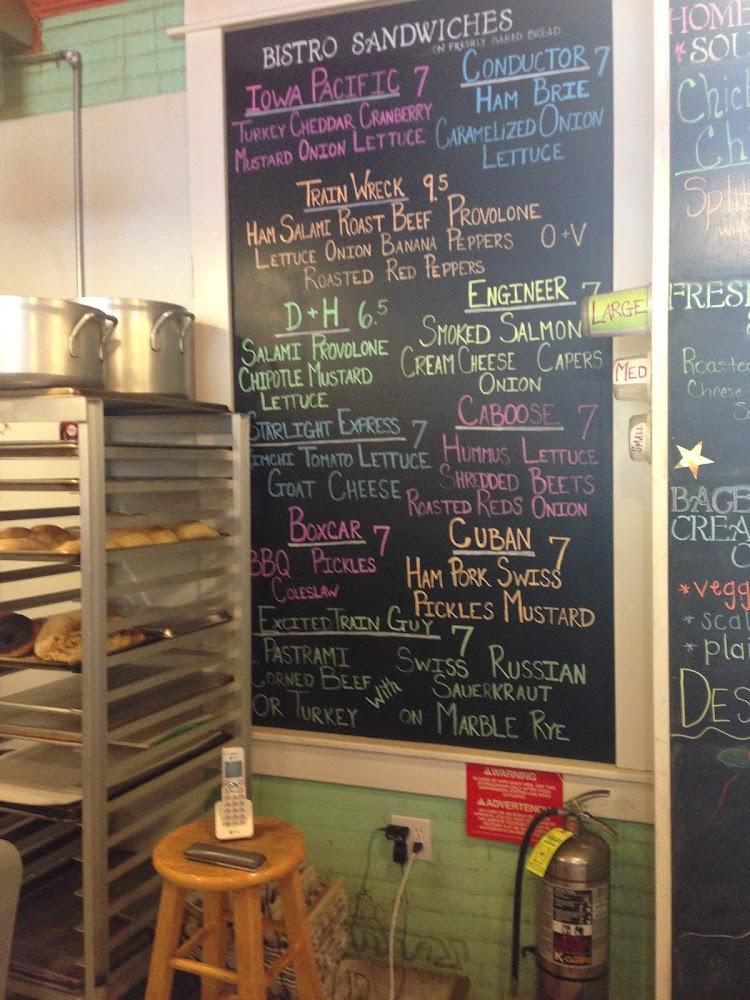 BISTRO SANDWICHES
ON FRESHLY BAKED BREAD
IOWA PACIFIC 7
TURKEY CHEDDAR CRANBERRY
MUSTARD ONION LETTUCE
CONDUCTOR 7
HAM BRIE
CARAMELIZED ONION
LETTUCE
TRAIN WRECK 9.5
HAM SALAMI ROAST BEEF PROVOLONE
LETTUCE ONION BANANA PEPPERS O+V
ROASTED RED PEPPERS
D+H 6.5
SALAMI PROVOLONE
CHIPOTLE MUSTARD
LETTUCE
ENGINEER 7
SMOKED SALMON
CREAM CHEESE CAPERS
ONION
STARLIGHT EXPRESS 7
IMCHI TOMATO LETTUCE
GOAT CHEESE
CABOOSE 7
HUMMUS LETTUCE
SHREDDED BEETS
ROASTED REDS ONION
BOXCAR 7
BBQ PICKLES
COLESLAW
CUBAN 7
HAM PORK SWISS
PICKLES MUSTARD
EXCITED TRAIN GUY 7
PASTRAMI
CORNED BEEF
OR TURKEY
WITH
SWISS RUSSIAN
SAUERKRAUT
ON MARBLE RYE
LARGE
MED
SMALL
HOM
*SOU
Chic
Ch
Spli
FRES
Roasted
Cheese
BAGE
CREA
*vegg
*scal
*plai
DES
WARNING
ADVERTENC
K-GUARD